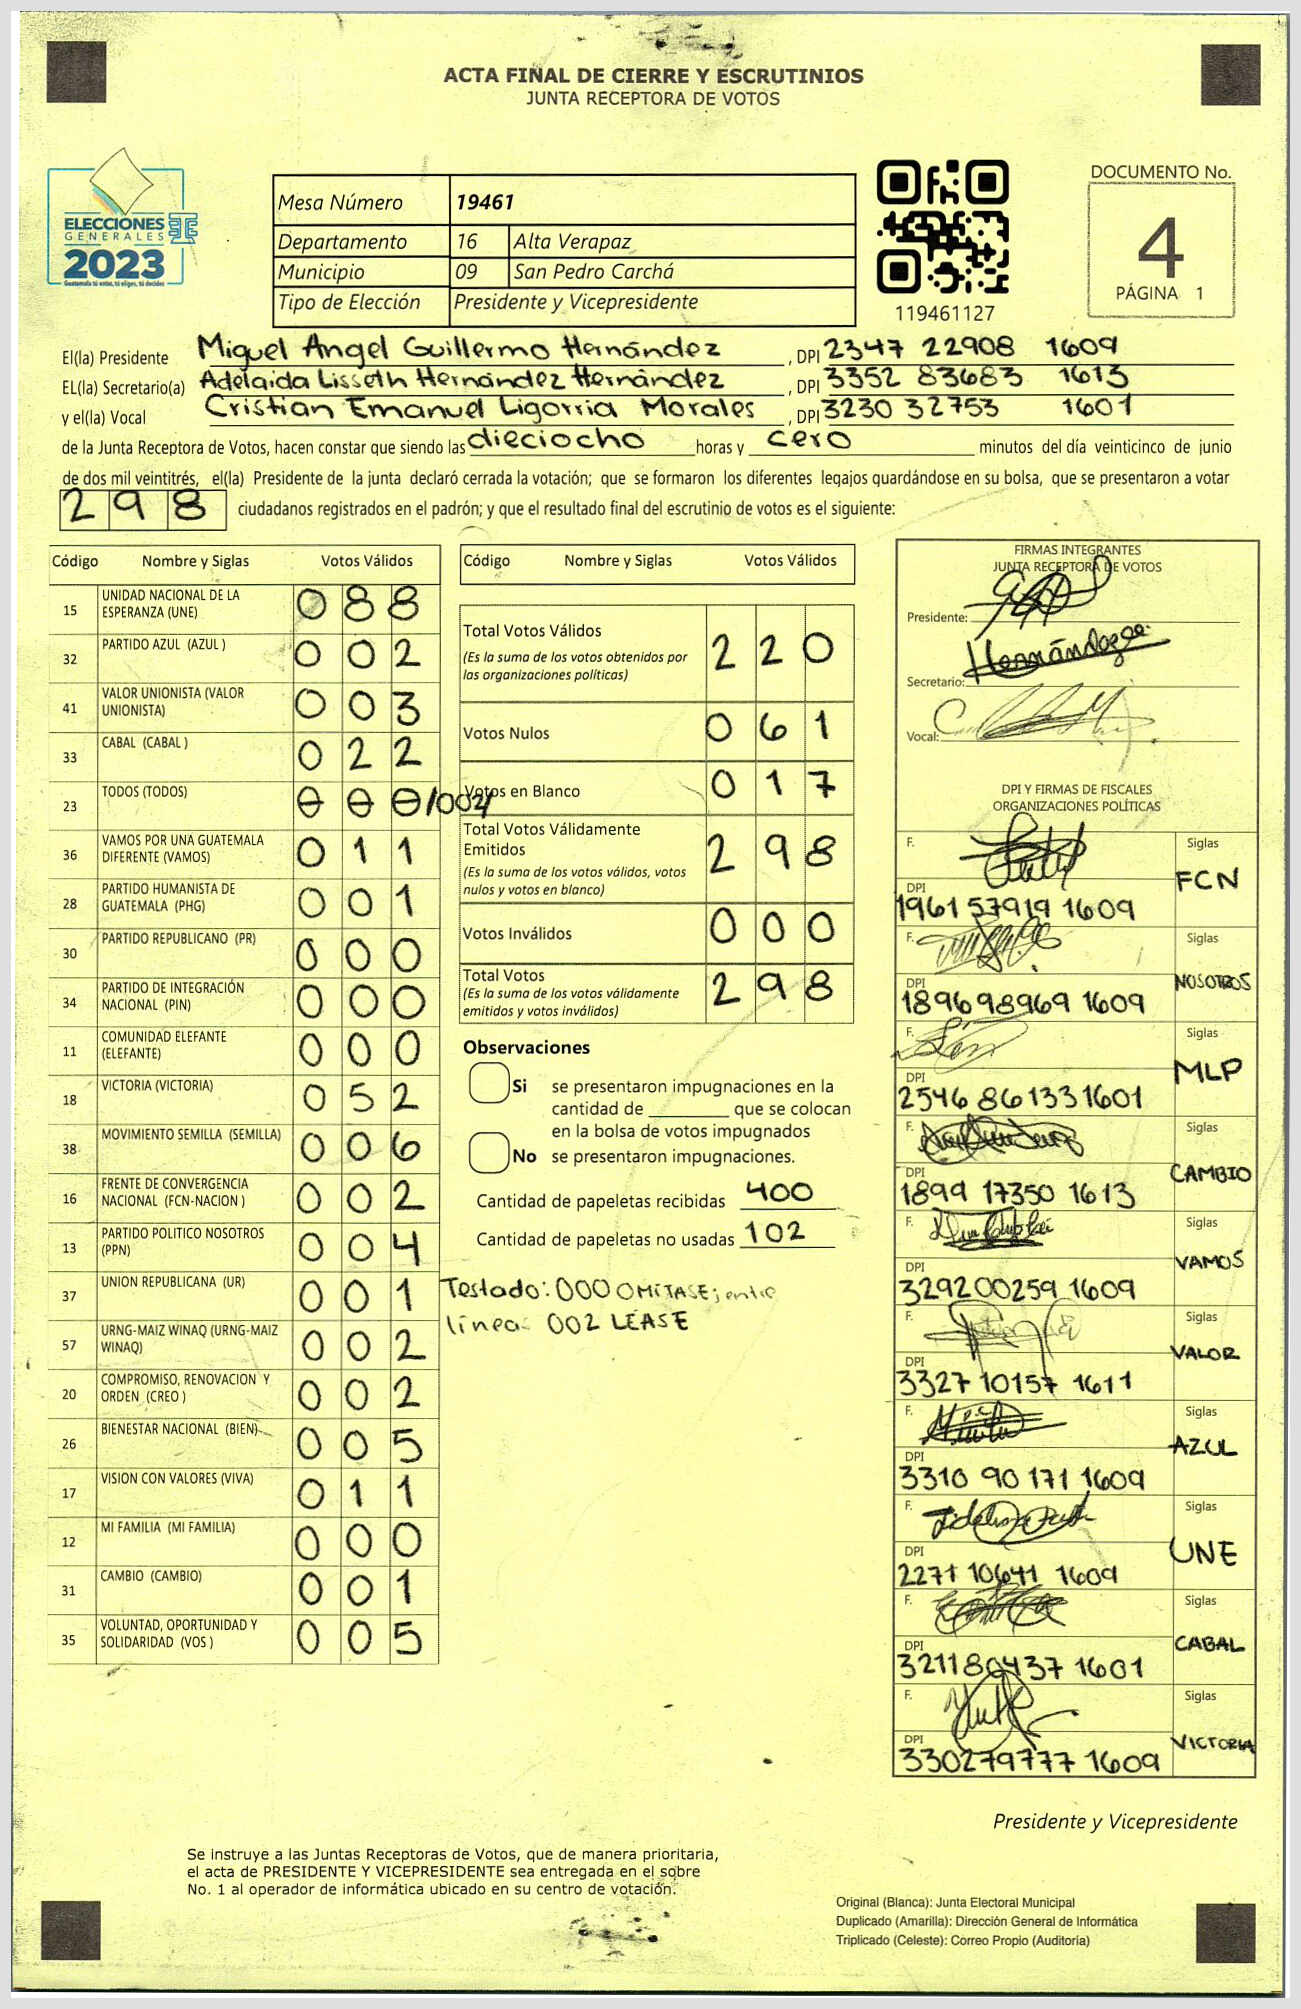 ACTA FINAL DE CIERRE Y ESCRUTINIOS
JUNTA RECEPTORA DE VOTOS
ELECCIONES
GENERALES
2023
Guatemala tú votas, tú eliges, tú decides
Mesa Número 19461
Departamento 16 Alta Verapaz
Municipio 09 San Pedro Carchá
Tipo de Elección Presidente y Vicepresidente
119461127
DOCUMENTO No.
4
PÁGINA 1
El(la) Presidente Miguel Angel Guillermo Hernández, DPI 2347 22908 1609
EL(la) Secretario(a) Adelaida Lisseth Hernández Hernández, DPI 3352 83683 1613
y el(la) Vocal Cristian Emanuel Ligorria Morales, DPI 3230 32753 1601
de la Junta Receptora de Votos, hacen constar que siendo las dieciocho horas y cero minutos del día veinticinco de junio
de dos mil veintitrés, el(la) Presidente de la junta declaró cerrada la votación; que se formaron los diferentes legajos guardándose en su bolsa, que se presentaron a votar
298 ciudadanos registrados en el padrón; y que el resultado final del escrutinio de votos es el siguiente:
Código Nombre y Siglas Votos Válidos
15 UNIDAD NACIONAL DE LA ESPERANZA (UNE) 0 8 8
32 PARTIDO AZUL (AZUL ) 0 0 2
41 VALOR UNIONISTA (VALOR UNIONISTA) 0 0 3
33 CABAL (CABAL ) 0 2 2
23 TODOS (TODOS) 0 0 0 /002/
36 VAMOS POR UNA GUATEMALA DIFERENTE (VAMOS) 0 1 1
28 PARTIDO HUMANISTA DE GUATEMALA (PHG) 0 0 1
30 PARTIDO REPUBLICANO (PR) 0 0 0
34 PARTIDO DE INTEGRACIÓN NACIONAL (PIN) 0 0 0
11 COMUNIDAD ELEFANTE (ELEFANTE) 0 0 0
18 VICTORIA (VICTORIA) 0 5 2
38 MOVIMIENTO SEMILLA (SEMILLA) 0 0 6
16 FRENTE DE CONVERGENCIA NACIONAL (FCN-NACION ) 0 0 2
13 PARTIDO POLITICO NOSOTROS (PPN) 0 0 4
37 UNION REPUBLICANA (UR) 0 0 1
57 URNG-MAIZ WINAQ (URNG-MAIZ WINAQ) 0 0 2
20 COMPROMISO, RENOVACION Y ORDEN (CREO ) 0 0 2
26 BIENESTAR NACIONAL (BIEN) 0 0 5
17 VISION CON VALORES (VIVA) 0 1 1
12 MI FAMILIA (MI FAMILIA) 0 0 0
31 CAMBIO (CAMBIO) 0 0 1
35 VOLUNTAD, OPORTUNIDAD Y SOLIDARIDAD (VOS ) 0 0 5
Código Nombre y Siglas Votos Válidos
Total Votos Válidos 2 2 0
(Es la suma de los votos obtenidos por
las organizaciones políticas)
Votos Nulos 0 6 1
Votos en Blanco 0 1 7
Total Votos Válidamente
Emitidos 2 9 8
(Es la suma de los votos válidos, votos
nulos y votos en blanco)
Votos Inválidos 0 0 0
Total Votos 2 9 8
(Es la suma de los votos válidamente
emitidos y votos inválidos)
Observaciones
Si se presentaron impugnaciones en la
cantidad de ________ que se colocan
en la bolsa de votos impugnados
No se presentaron impugnaciones.
Cantidad de papeletas recibidas 400
Cantidad de papeletas no usadas 102
Testado: 000 OMITASE; entre
lineas 002 LEASE
FIRMAS INTEGRANTES
JUNTA RECEPTORA DE VOTOS
Presidente:
Secretario: Hernández
Vocal:
DPI Y FIRMAS DE FISCALES
ORGANIZACIONES POLÍTICAS
F. Siglas FCN
DPI 1961 57919 1609
F. Siglas NOSOTROS
DPI 1896 98969 1609
F. Siglas MLP
DPI 2546 86133 1601
F. Siglas CAMBIO
DPI 1899 17350 1613
F. Siglas VAMOS
DPI 3292 00259 1609
F. Siglas VALOR
DPI 3327 10157 1611
F. Siglas AZUL
DPI 3310 90 171 1609
F. Siglas UNE
DPI 2271 10641 1609
F. Siglas CABAL
DPI 3211 80437 1601
F. Siglas VICTORIA
DPI 330279777 1609
Presidente y Vicepresidente
Se instruye a las Juntas Receptoras de Votos, que de manera prioritaria,
el acta de PRESIDENTE Y VICEPRESIDENTE sea entregada en el sobre
No. 1 al operador de informática ubicado en su centro de votación.
Original (Blanca): Junta Electoral Municipal
Duplicado (Amarilla): Dirección General de Informática
Triplicado (Celeste): Correo Propio (Auditoría)